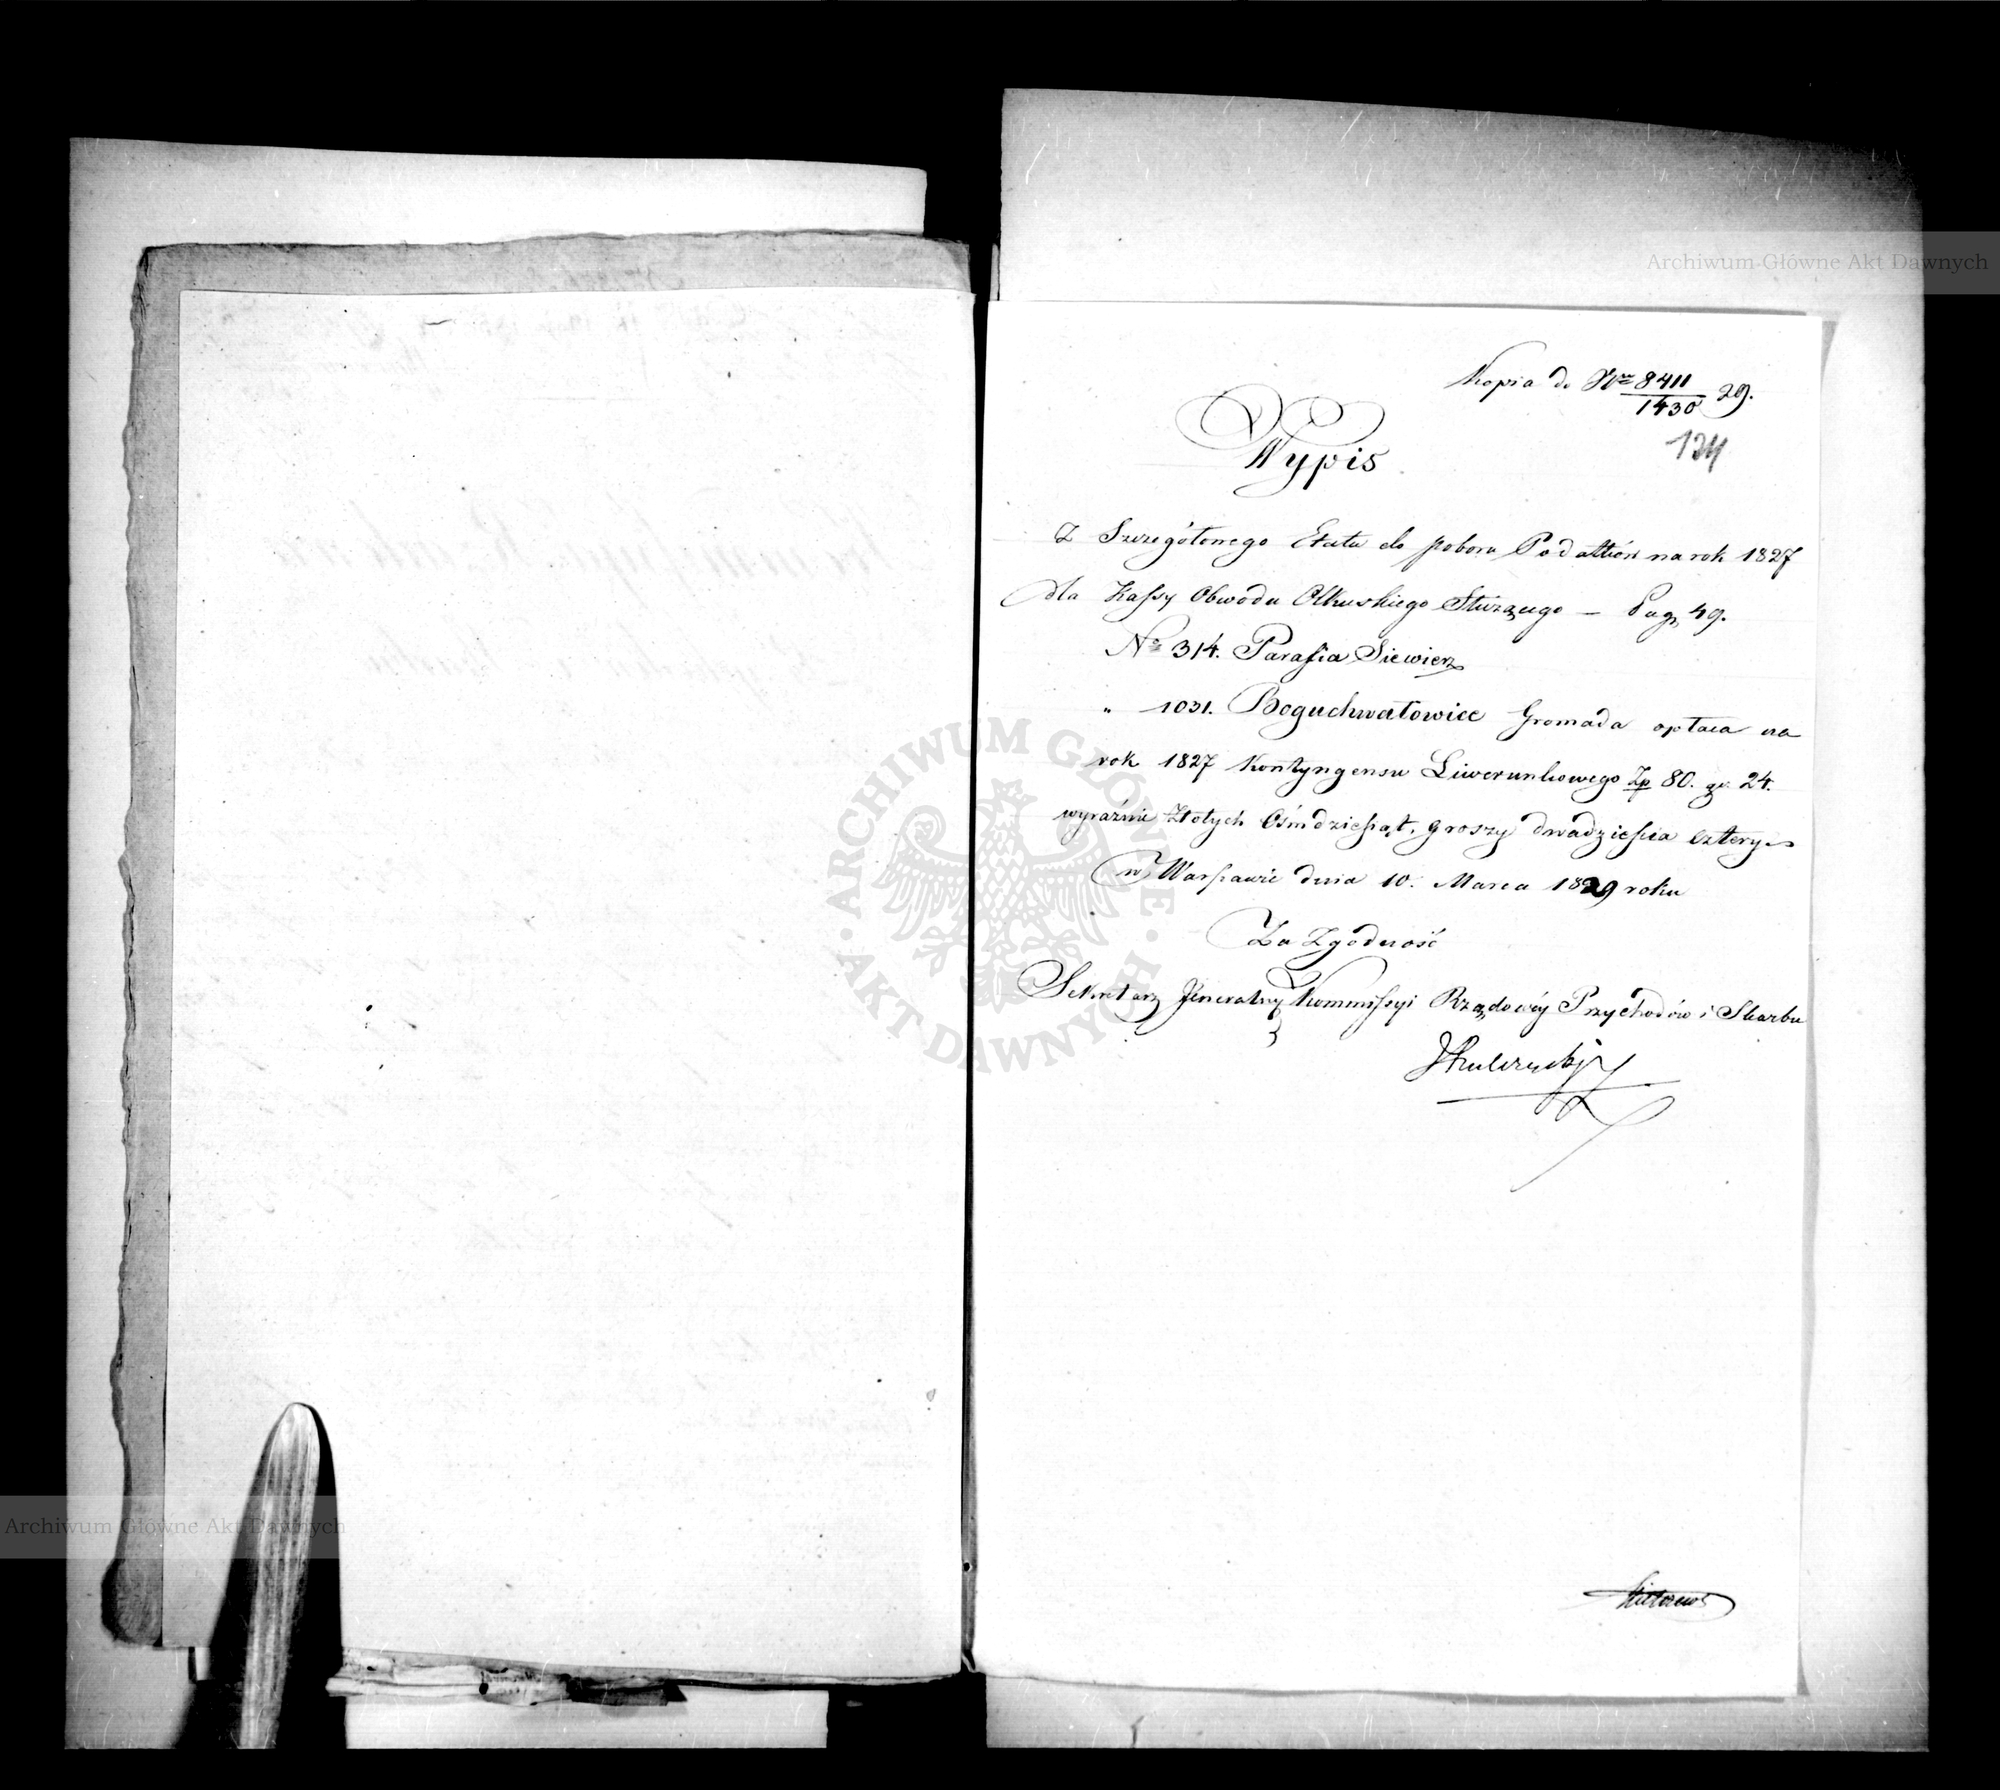 Kopia do Nru 8411
1430 29.
124
Wypis
Z Szczegółowego Etatu do poboru Podatków na rok 1827
dla Kassy Obwodu Olkuskiego Służącego — Pag. 49.
No 314. Parafia Siewierz
" 1031. Boguchwałowice Gromada opłaca na
rok 1827 Kontyngensu Liwerunkowego Zp 80. gr. 24.
wyraźnie Złotych Ośmdziesiąt, groszy dwadzieścia cztery
w Warszawie dnia 10. Marca 1829 roku
Za Zgodność
Sekretarz Jeneralny Kommissyi Rządowéy Przychodów i Skarbu
Archiwum Główne Akt Dawnych
Archiwum Główne Akt Dawnych
ARCHIWUM GŁÓWNE
AKT DAWNYCH